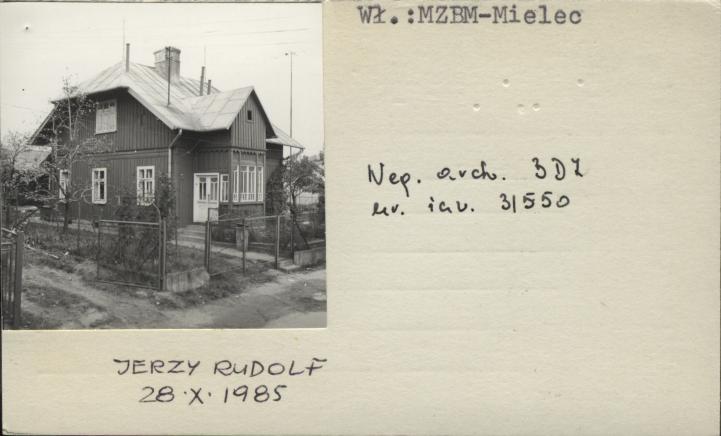 Wł.:MZBM-Mielec
Neg. arch. 3DZ
nr. inv. 31550
JERZY RUDOLF
28.X.1985